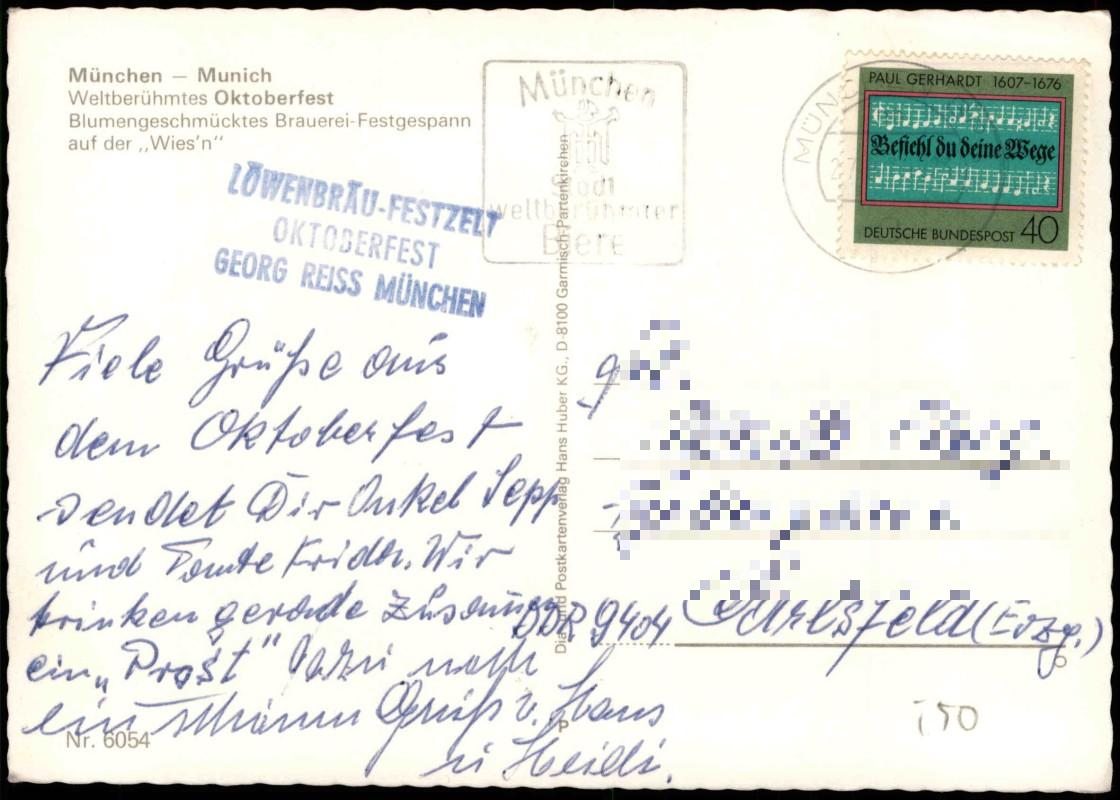 München — Munich
Weltberühmtes Oktoberfest
Blumengeschmücktes Brauerei-Festgespann
auf der „Wies'n“
LÖWENBRÄU-FESTZELT
OKTOBERFEST
GEORG REISS MÜNCHEN
München
Stadt
weltberühmter
Biere
MÜNCHEN
PAUL GERHARDT 1607-1676
Befiehl du deine Wege
DEUTSCHE BUNDESPOST 40
Viele Grüße aus
dem Oktoberfest
sendet Dir Onkel Sepp
und Tante Fridh. Wir
trinken gerade zusammen
ein „Prost“ dazu noch
ein Gruß v. Hans
u Heidi.
DDR 9404 Carlsfeld (Erzg.)
Dia und Postkartenverlag Hans Huber KG., D-8100 Garmisch-Partenkirchen
P
Nr. 6054
150